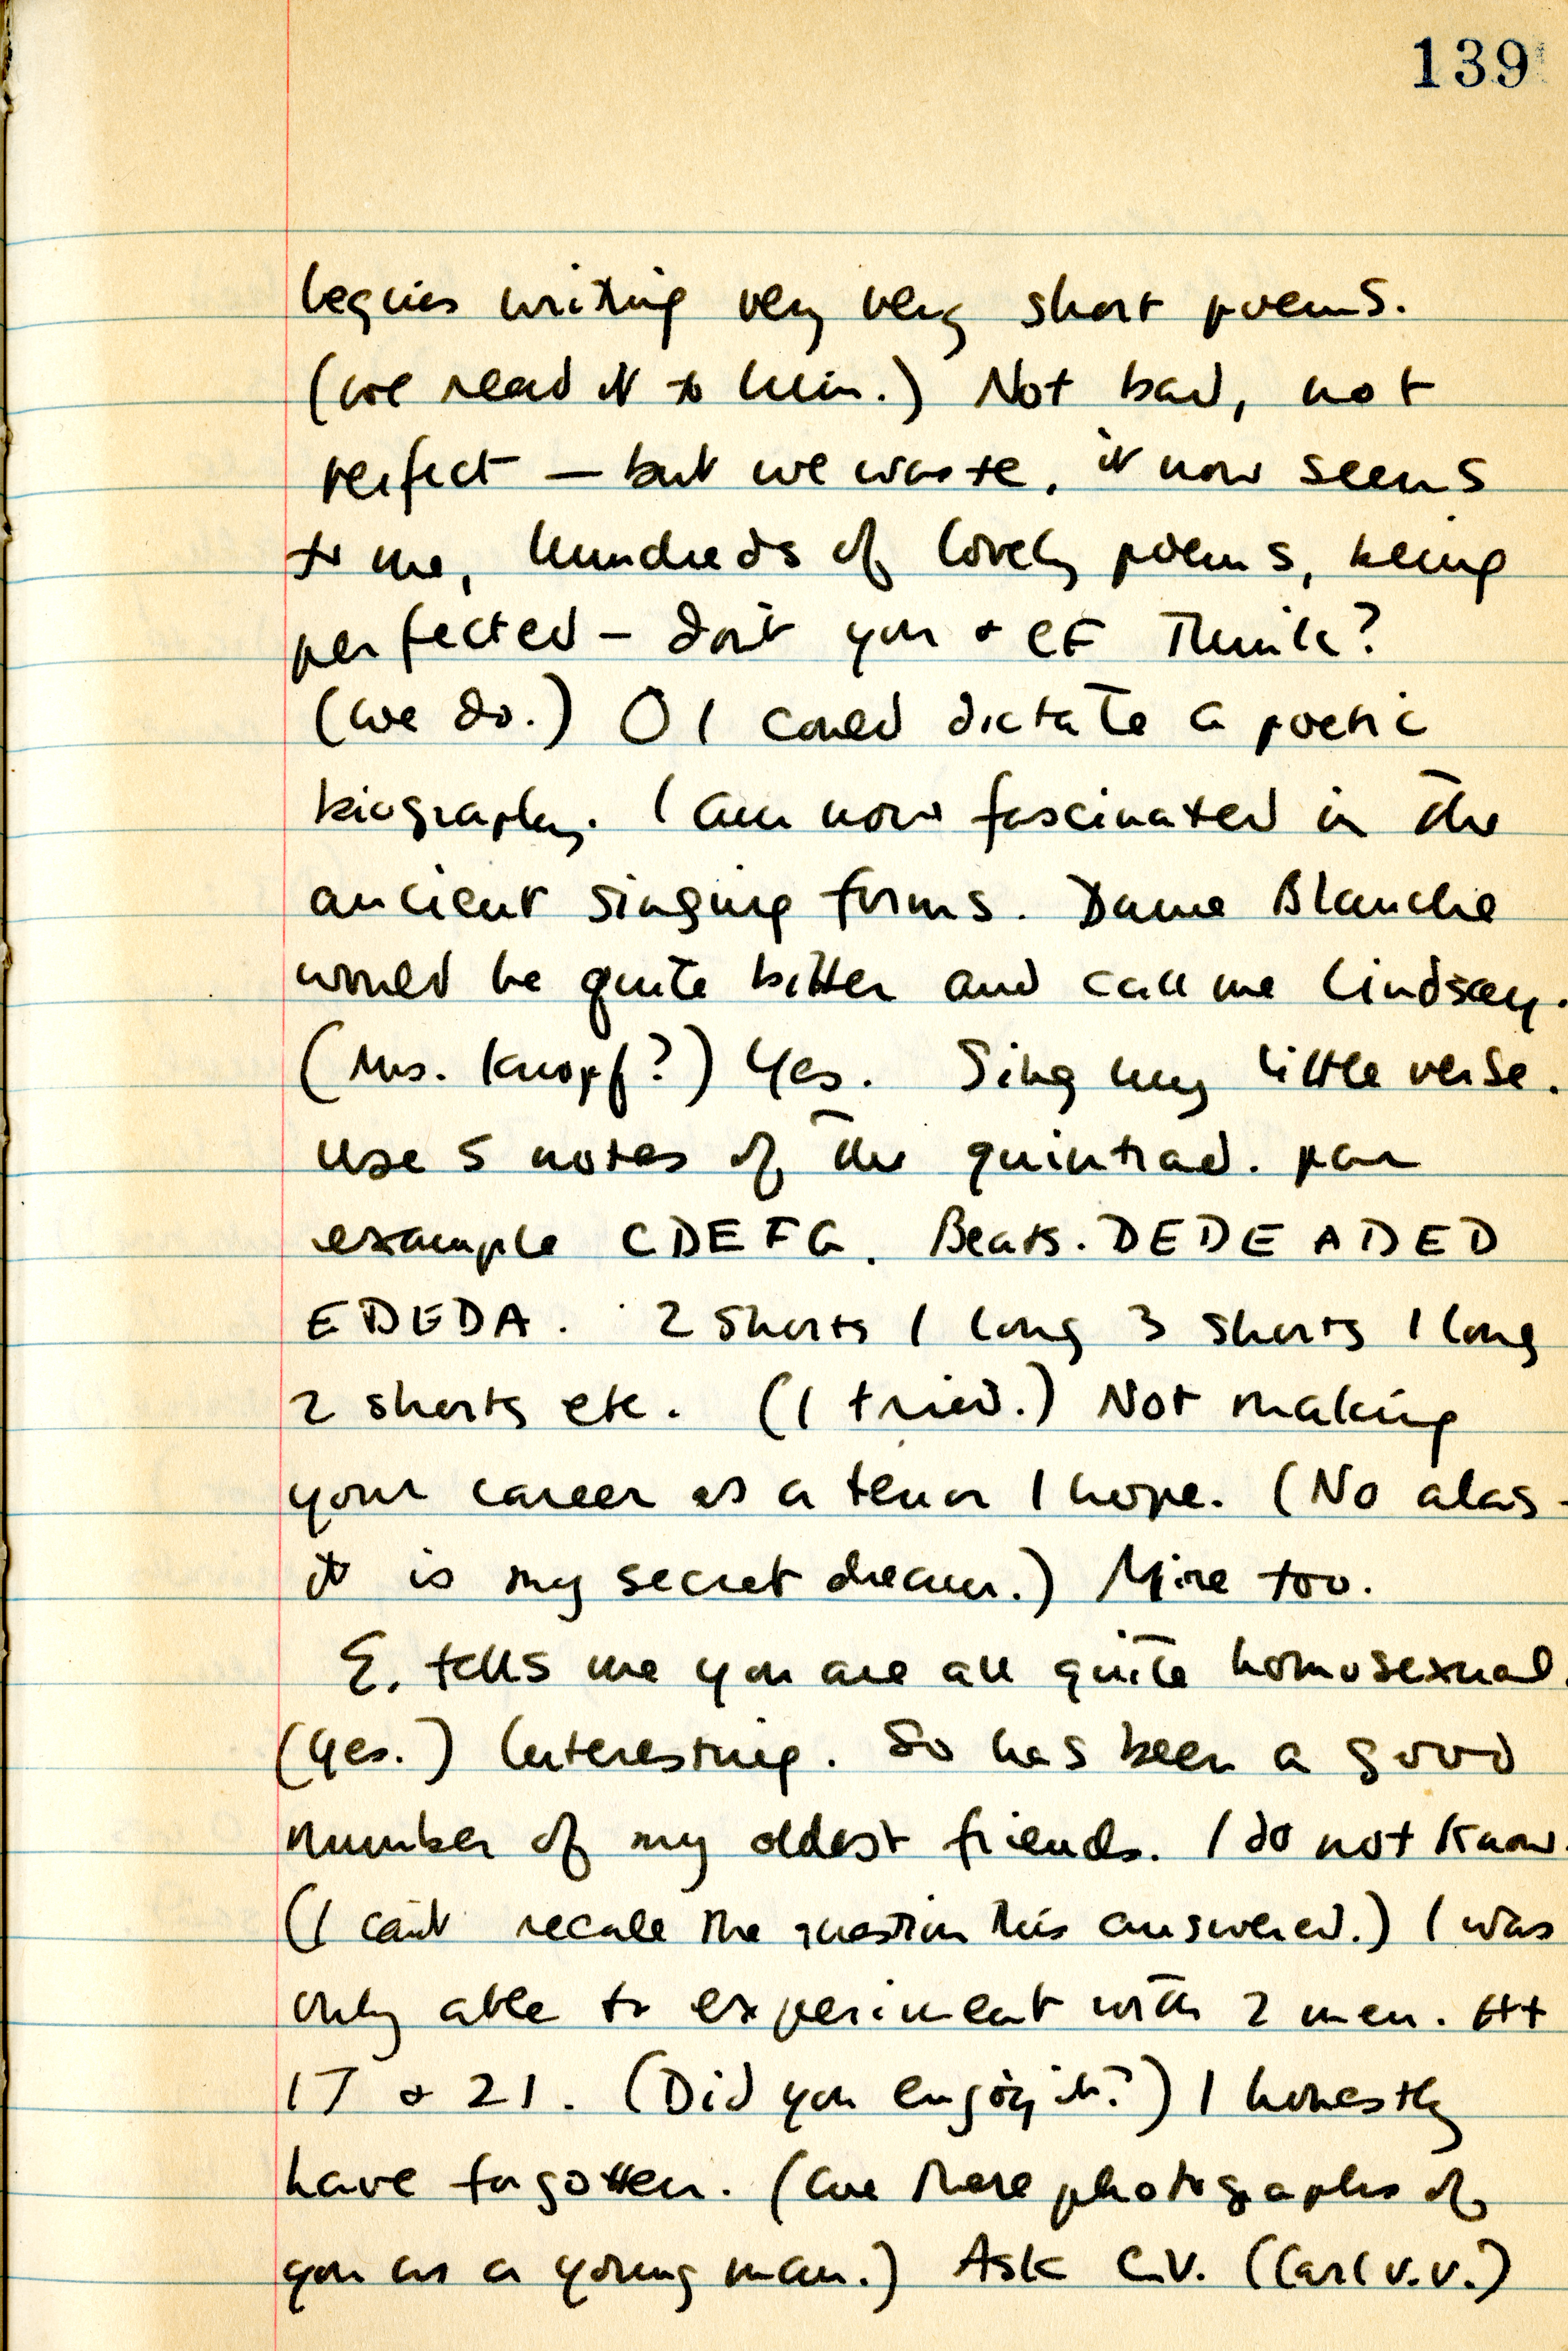 139
begins writing very very short poems.
(we read it to him.) Not bad, not
perfect — but we waste, it now seems
to me, hundreds of lovely poems, being
perfected — don't you + EF think?
(we do.) O I could dictate a poetic
biography. I am now fascinated in the
ancient singing forms. Dame Blanche
would be quite bitter and call me Lindsay.
(Mrs. Knopf?) Yes. Sing my little verse.
Use 5 notes of the quintrad. par
example CDEFG. Beats. DEDE ADED
EDEDA. 2 shorts 1 long 3 shorts 1 long
2 shorts etc. (I tried.) Not making
your career as a tenor I hope. (No alas -
it is my secret dream.) Mine too.
E. tells me you are all quite homosexual.
(Yes.) Interesting. So has been a good
number of my oldest friends. I do not know.
(I can't recall the question this answered.) I was
only able to experiment with 2 men. At
17 + 21. (Did you enjoy it?) I honestly
have forgotten. (Are there photographs of
you as a young man.) Ask C.V. (Carl V.V.)